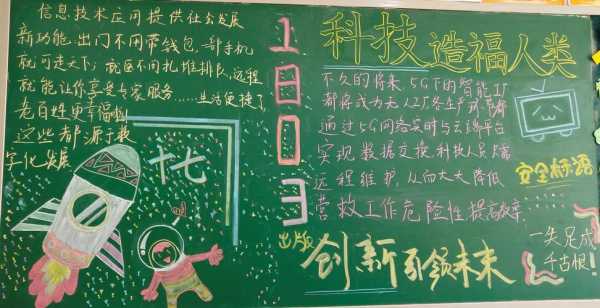 信息技术应用提供社会发展
新功能.出门不用带钱包,一部手机
就可走天下;就医不用扎堆排队,远程
就能让你享受专家服务……生活便捷了
老百姓更幸福啦
这些都源于数
字化发展
十七
1803
出版
科技造福人类
不久的将来5G下的智能工厂
都将成为无人工厂
通过5G网络实时与云端平台
实现数据交换科技人员
远程维护,从而大大降低
营救工作危险性提高效率
创新引领未来
安全标语
一失足成
千古恨!